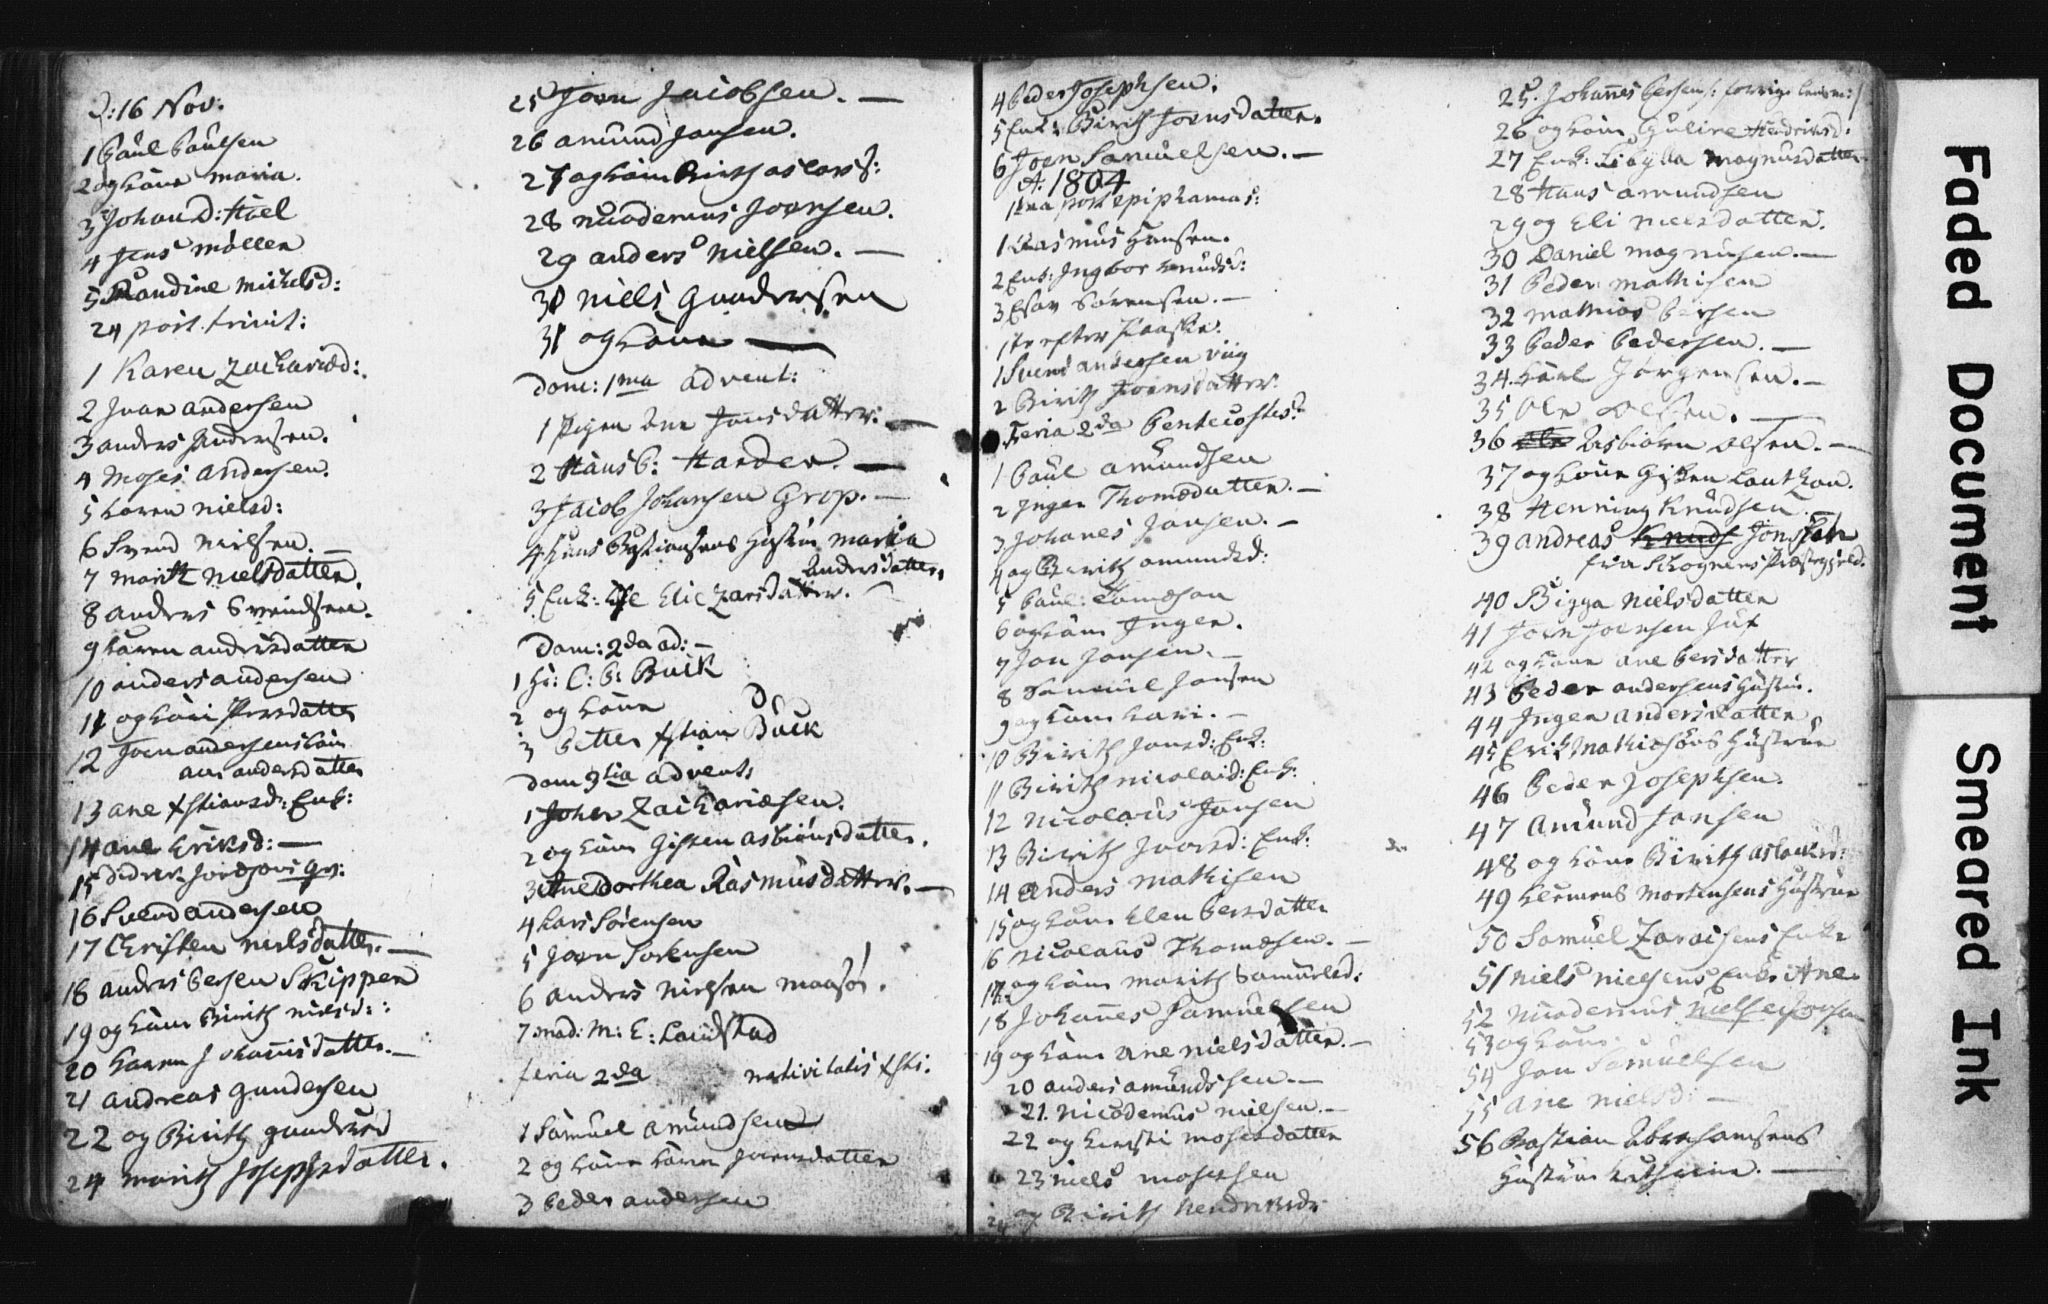 D: 16 Nov:
1 Paul Paulsen
2 og kone Maria.
3 Johan D: Hoel
4 Jens Møller
5 Randine Mickelsd:
24 post trinit:
1 Karen Zachariæd:
2 Ivar Andersen
3 Anders Andersen.
4 Moses Andersen.
5 Karen Nielsd:
6 Svend Nielsen
7 Marith Nielsdatter.
8 Anders Svendsen.
9 Karen Andersdatter
10 Anders Andersen
11 og kone Persdatter
12 Joen Andersens kone
Ane Andersdatter
13 Ane Xstiansd: Enk:
14 Ane Eriksd: —
15 Didrik
16 Svend Andersen
17 Christen Nielsdatter. —
18 Anders Persen Skipper
19 og kone Birith Nielsd:
20 Karen Johannisdatter. —
21 Andreas Gundersen
22 og Birith Gundersd
24 Marith Josephsdatter.
25 Joen Jacobsen. —
26 Amund Jonsen.
27 og kone Birith Aslaksd:
28 Nicodemus Joensen.
29 Anders Nielsen. —
30 Niels Gundersen
31 og kone —
Dom: 1ma Advent:
1 Pigen Ane Jonsdatter: —
2 Hans P: Harder. —
3 Jacob Johansen Grop. —
4 Hans Bastiansens Hustru Maria
Andersdatter.
5 Enk: Elie Zarsdatter.
Dom: 2da ad: —
1 Hr: C: P: Buck
2 og kone
3 Petter Xstian Buck
Dom 3tia Advent:
1 Joher Zachariæsen.
2 og kone Gisken Asbiönsdatter.
3 Ane Dorthea Rasmusdatter. —
4 Lars Sörensen
5 Joen Sörensen
6 Anders Nielsen Maasö.
7 Mad: M: E: Laudstad
feria 2da nativitatis Xsti.
1 Samuel Amundsen
2 og kone Karen Joensdatter
3 Peder Andersen
4 Peder Josephsen.
5 Enk: Birith Joensdatter.
6 Joen Samuelsen. —
A: 1804
1ma post epiphanias:
1 Rasmus Hansen.
2 Enk: Ingbor Knudsd:
3 Esav Sörensen. —
1te efter Paaske.
1 Svend Andersen Viig
2 Birith Joensdatter.
Feria 2da Pentecostes:
1 Paul Amundsen
2 Inger Thomædatter. —
3 Johanes Jonsen. —
4 og Birith Amundsd:
5 Paul Tomæsen
6 og kone Inger.
7 Jon Jonsen. —
8 Samuel Jonsen
9 og kone Kari. —
10 Birith Jonsd: Enk:
11 Birith Nicolaid: Enk:
12 Nicolaus Jonsen
13 Birith Ivarsd: Enk:
14 Anders Mathisen
15 og kone Elen Persdatter
16 Nicolaus Thomæsen. —
17 og kone Marith Samuelsd:
18 Johanes Samuelsen
19 og kone Ane Nielsdatter. —
20 Anders Amundsen. —
21. Nicodemus Nielsen. —
22 og Kirsti Mosesdatter
23 Niels Mosesen
24 og Birith Hendriksd:
25. Johannes Persen /: forrige Lensm: /
26 og kone Guline Hendriksd:
27 Enk: Sibylla Magnusdatter
28 Hans Amundsen
29 og Eli Nielsdatter.
30 Daniel Magnusen. —
31 Peder Mathisen
32 Mathias Persen
33 Peder Pedersen. —
34. Karl Jörgensen. —
35 Ole Olsen. —
36 Asbiören Olsen. —
37 og kone Gisken
38 Henning Knudsen
39 Andreas Knuds Jonsen
fra Skogners Præstegield.
40 Bigga Nielsdatter
41 Joen Joensen Juf
42 og kone Ane Persdatter
43 Peder Andersens Hustru.
44 Inger Andersdatter
45 Erik Mathiæsöns Hustrue
46 Peder Josephsen.
47 Amund Jonsen
48 og kone Birith Aslaksd:
49 Klemens Mortensens Hustrue
50 Samuel Zaraisens Enke
51 Niels Nielsens Enke Ane
52 Nicodemus Nielsen
53 og kone.
54 Jon Samuelsen
55 Ane Nielsd: —
56 Bastian Abrahamsens
Hustrue Kathrine. —
Faded Document
Smeared Ink